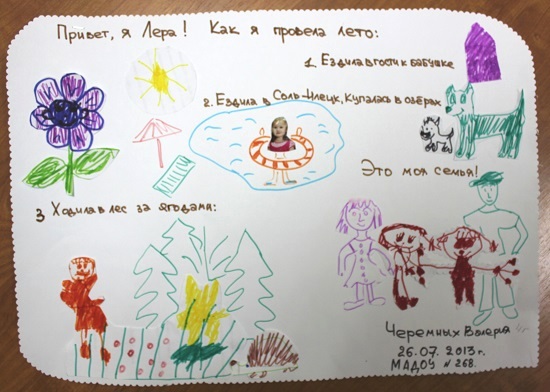 Привет, я Лера! Как я провела лето:
1. Ездила в гости к бабушке
2. Ездила в Соль-Илецк, купалась в озёрах
Это моя семья!
3 Ходила в лес за ягодами:
Черемных Валерия
26.07.2013 г.
МАДОУ № 268.